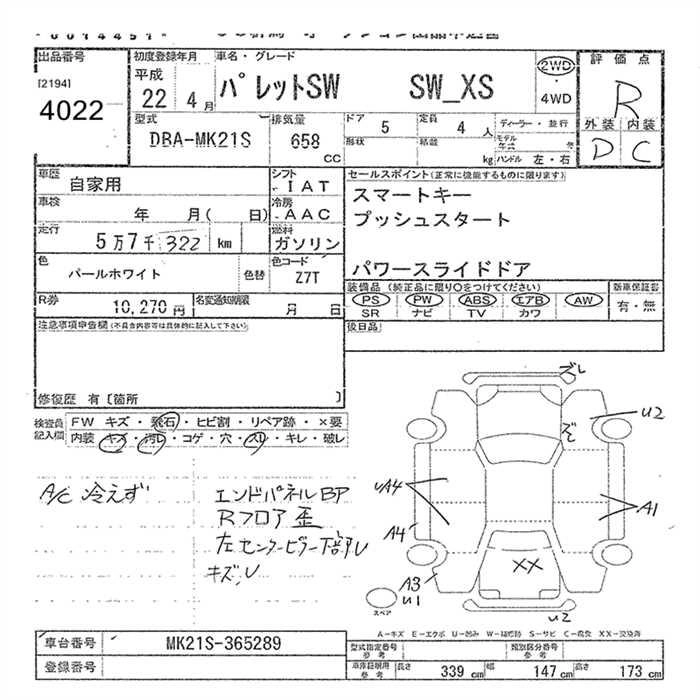 出品番号
[2194]
4022
初度登録年月
平成
22年 4月
車名・グレード
パレットSW SW_XS
2WD
4WD
評価点
R
外装 内装
D C
型式
DBA-MK21S
排気量
658
CC
ドア 5
定員 4 人
形状
積載 kg
ディーラー・並行
モデル年式 年
ハンドル 左・右
車歴
自家用
シフト
IAT
車検
年 月( 日)
冷房
AAC
走行
5万7千322 km
燃料
ガソリン
色
パールホワイト
色替
色コード
Z7T
R券
10,270円
名変通知期限
月 日
セールスポイント(正常に機能するものに限ります)
スマートキー
プッシュスタート
パワースライドドア
装備品(純正品に限り○をつけてください)
新車保証書
PS PW ABS エアB AW
有・無
SR ナビ TV カワ
後日品
注意事項申告欄(不具合内容等は具体的に記入して下さい)
修復歴 有〔箇所 〕
検査員記入欄
FW キズ・飛石・ヒビ割・リペア跡・×要
内装・キズ・汚レ・コゲ・穴・スレ・キレ・破レ
A/C 冷えず
エンドパネルBP
Rフロア歪
左センターピラー下部U
キズ,U
ズレ
U2
UA4
A1
A4
XX
A3
U1
スペア
U2
A-キズ E-エクボ U-凹み W-補修跡 S-サビ C-腐食 XX-交換済
車台番号
MK21S-365289
登録番号
型式指定番号
参考
類別区分番号
参考
車庫証明用
参考
長さ 339 cm 幅 147 cm 高さ 173 cm